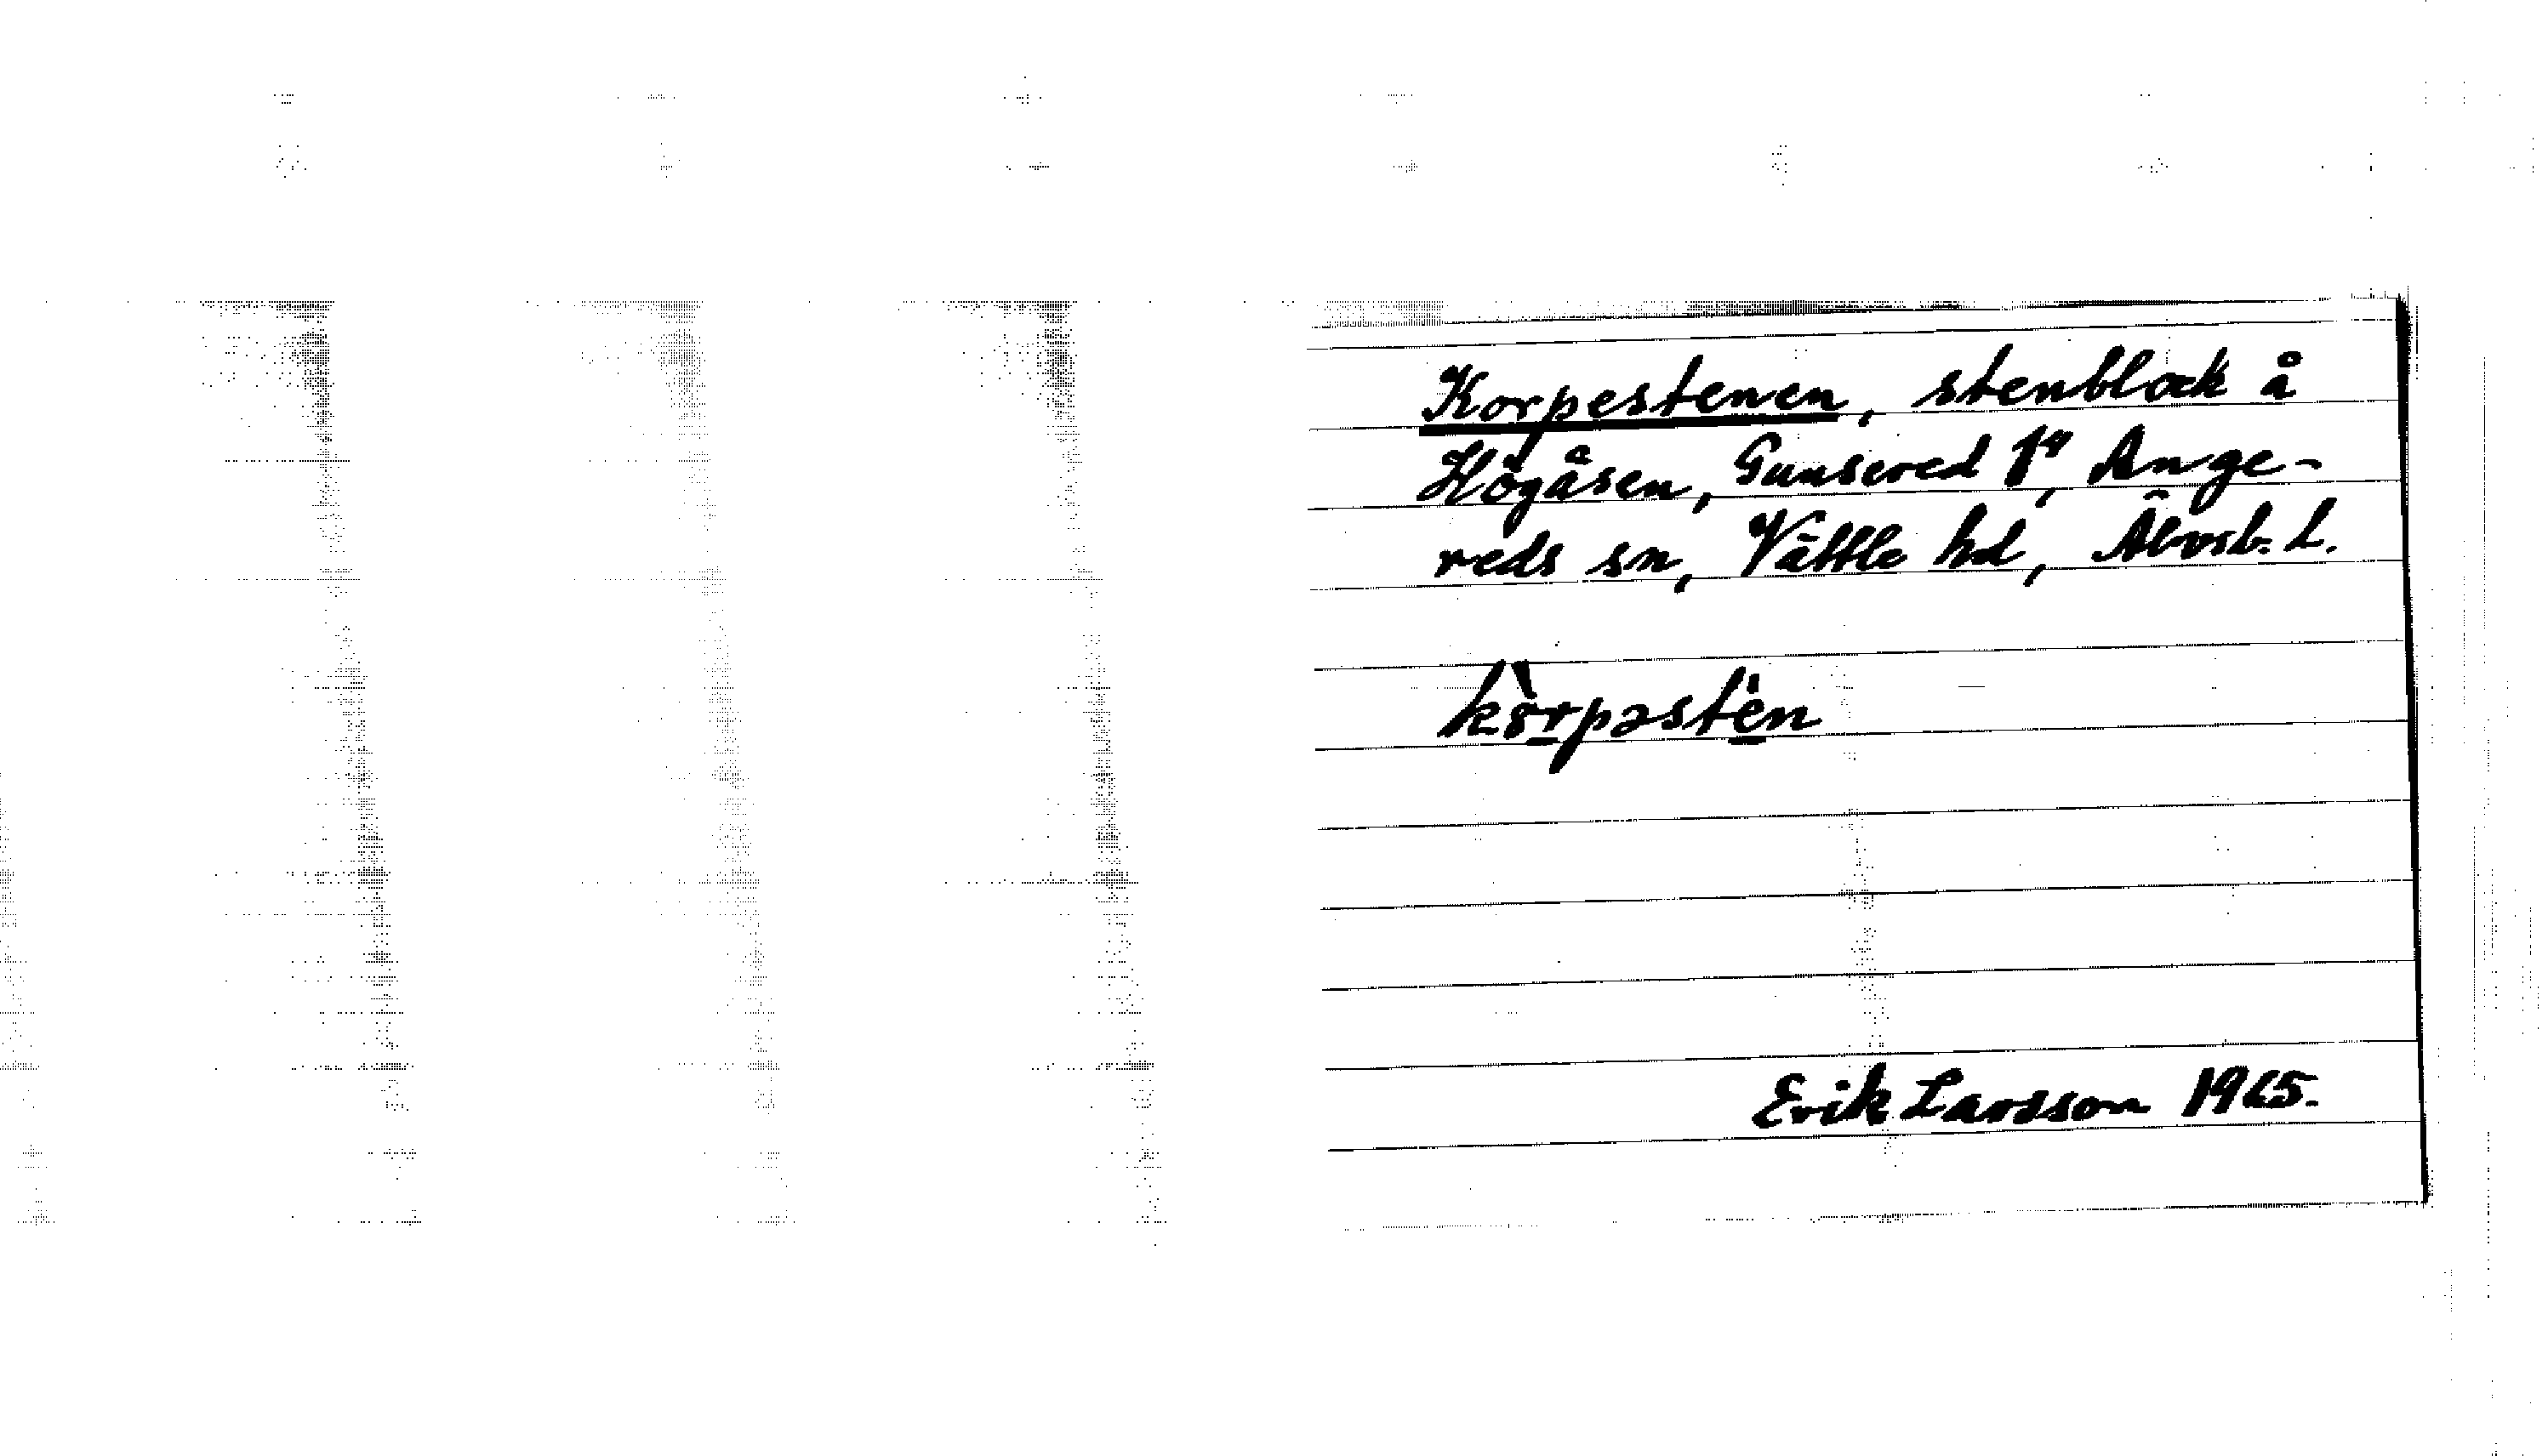 Korpestenen, stenblock å
Högåsen, Gunsered 1⁴, Ange-
reds sn, Vättle hd, Älvsb. L.
kòrpəstén
Erik Larsson 1965.